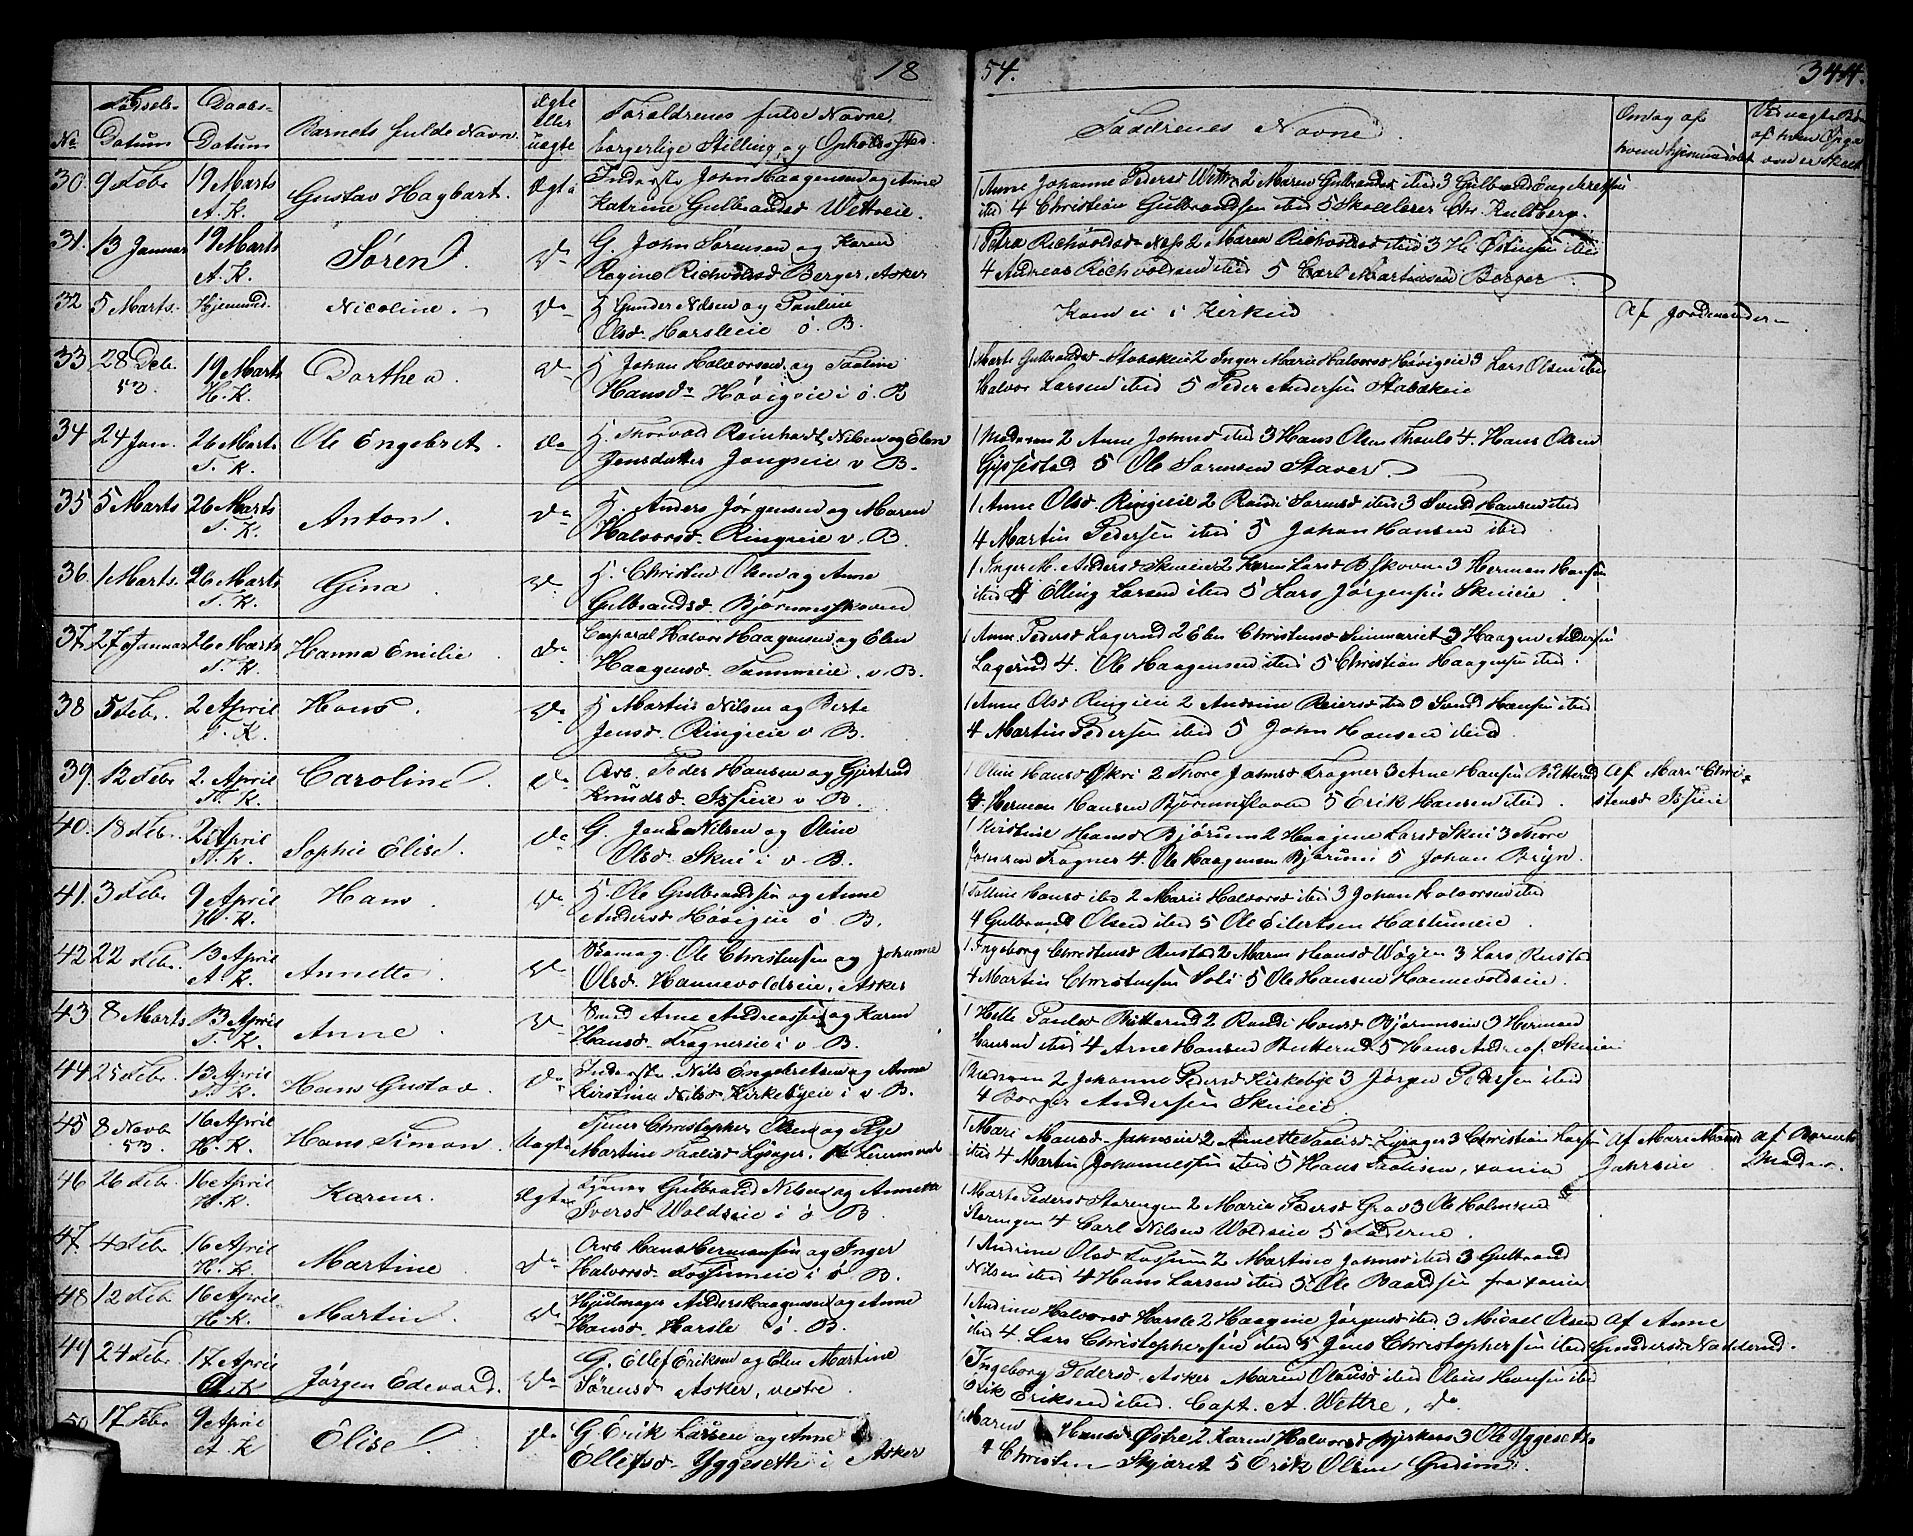 18
54.
344.
No
Fødsels-
Datum
Daabs-
Datum
Barnets fulde Navn.
Ægte
eller
uægte
Forældrenes fulde Navne
borgerlige Stilling og Opholdssted.
Faddrenes Navne
Om dag af
hvem hjemmedøbt
30. 9 Febr 19 Marts A. K. Gustav Hagbart. Ægte
Inderste John Haagensen og Anne
Katrine Gulbrandsd Wettreie.
1 Anne Johanne Pedersd Wettre 2 Maren Gulbrandsd ibid 3 Gulbrand Engebretsen
ibid 4 Christian Gulbrandsen ibid 5 Skolelærer Chr. Kultberg.
31. 13 Januar 19 Marts A. K. Søren. Do
G. John Sørensen og Karen
Regine Richvoldsd Berger, Asker
1 Petra Richvoldsd Næss 2 Maren Richvoldsd ibid 3 H. Østensen ibid
4 Andreas Richvoldsen ibid 5 Carl Martinsen Berger.
32 5 Marts. Hjemmed. Nicoline. Do
H Gunder Nilsen og Pauline
Olsd. Harsleeie ø. B.
Kom ei i Kirken
Af Jordemoderen
33 28 Debr. 53. 19 Marts H. K. Dorthea. Do
H Johan Halvorsen og Pauline
Hansdr Høvigeie i ø. B
1 Marte Gulbrandsd Stabækeie 2 Inger Marie Halvorsd Høvigeie 3 Lars Olsen ibid
Halvor Larsen ibid 5 Peder Andersen Stabækeie
34 24 Jan. 26 Marts T. K. Ole Engebret. Do
H. Thorvald Reinhardt Nilsen og Elen
Jensdatter Jongseie v. B.
1 Moderen 2 Anne Johnsd ibid 3 Hans Olsen 4. Hans Olsen
Gjettestad 5 Ole Sørensen Staver
35 5 Marts 26 Marts T. K. Anton. Do
H. Anders Jørgensen og Maren
Halvorsd. Ringieie v. B.
1 Anne Olsd Ringieie 2 Randi Sørensd ibid 3 Svend Hansen ibid
4 Martin Pedersen ibid 5 Johan Hansen ibid.
36. 1 Marts. 26 Marts T. K. Gina. Do
H. Christen Olsen og Anne
Gulbrandsd. Bjørumsskoven
1 Inger M. Andersd Skuieie 2 Karen Larsd B.skoven 3 Herman Hansen
ibid 4 Elling Larsen ibid 5 Lars Jørgensen Skuieie
37. 27 Januar 26 Marts T. K. Hanna Emilie. Do
Corporal Halvor Haagensen og Elen
Haagensd. Tanumeie. v. B.
1 Anne Pedersd Lagerud 2 Elen Christensd 3 Haagen Andersen
Lagerud 4. Ole Haagensen ibid 5 Christian Haagensen ibid.
38 5 Febr. 2 April T. K. Hans. Do
H Martin Nilsen og Berte
Jensd. Ringieie v. B.
1 Anne Olsd Ringieie 2 Andrine Reiersd ibid 3 Svend Hansen ibid
4 Martin Pedersen ibid 5 John Hansen ibid.
39. 12 Febr 2. April T. K. Caroline. Do
Arb. Peder Hansen og Gjertrud
Knudsd. Tofseie v. B.
1 Oline Hansd Økri 2 Thore Johnsd Frogner 3 Arne Hansen Bitterud
4. Herman Hansen Bjørumsskoven 5 Erik Hansen ibid.
Af Mari Chri-
stensd Tofseie
40. 18 Febr. 2 April T. K. Sophie Elise. Do
G. Jens Nilsen og Oline
Olsd. Skui i v. B.
1 Kirstine Hansd Bjørum 2 Haagine Larsd Skui 3 Thore
Johnsen Frogner 4. Ole Haagensen Bjørum 5 Johan Bryn.
41. 3 Febr 9 April H. K. Hans. Do
H. Ole Gulbrandsen og Anne
Andersd Høvigeie ø B.
1 Pauline Hansd ibid 2 Marie Halvorsd ibid 3 Johan Halvorsen ibid
4 Gulbrand Olsen ibid 5 Ole Eilertsen Haslumeie
42 22 Febr. 13 April A. K. Annette. Do
Ole Christensen og Johanne
Olsd. Hannevoldseie. Asker
1 Ingeborg Christensd Rustad 2 Maren Hansd Wøyen 3 Lars Rustad
4 Martin Christensen Soli 5 Ole Hansen Hannevoldseie.
43 8 Marts 13 April T. K. Anne. Do
Smed Arne Andreassen og Karen
Hansd. Frogneeie i v. B.
1 Helle Paulsd Bitterud 2 Randi Hansd Bjørumseie 3 Herman
Hansen ibid 4 Arne Hansen Butterud 5 Hans Andreas. Skuieie
44 25 Febr. 13 April T. K. Hans Gustav. Do
Inderste Nils Engebretsen og Anne
Kirstina Nilsd Kirkebyeie i v. B.
1 Moderen 2 Johanne Pedersd Kirkebye 3 Jørgen Pedersen ibid
4 Børger Andersen Skuieie.
45 8 Novb 53. 16 April H. K. Hans Simon. Uægte
Tjener Christopher Olsen og Pige
Martine Paulsd Lysager,
1 Mari Monsd Jahrseie 2 Annette Paulsd Lysager 3 Christian Larsen
ibid 4 Martin Johannessen ibid 5 Hans Paulsen, xania
Af Mari Monsd
Jahrseie.
Af Barnets
Moder.
46 26 Febr. 16 April H. K. Karen. Ægte
Tjener Gulbrand Nilsen og Annette
Iversd. Woldseie i ø B.
1 Marte Pedersd Staverengen 2 Marie Pedersd Grav 3 Ole Holmsen
Størengen 4 Carl Nilsen Woldseie 5 Faderen
47. 4 Febr. 16 April H. K. Martine. Do
Arb. Hans Hermansen og Inger
Halvorsd. Fossumeie i ø B.
1 Andrine Olsd Fossum 2 Martine Johnsd ibid 3 Gulbrand
Nilsen ibid 4 Hans Larsen ibid 5 Ole Baardsen fra xania
48 12 Febr 16 April H. K. Martin. Do
Hjulmager Anders Haagensen og Anne
Hansd. Harsle ø. B.
1 Andrine Halvorsd Harsle 2 Haagine Jørgensd ibid 3 Micael Olsen
ibid 4. Lars Christophersen ibid 5 Jens Christophersen ibid
Af Anne
Gundersd Nadderud.
49 24 Febr. 17 April A. K. Jørgen Edevard. Do
G. Ellef Eriksen og Elen Martine
Sørensd Asker, vestre.
1 Ingeborg Pedersd. Asker Maren Olausd ibid Olaus Hansen ibid
Erik Eriksen ibid. Capt. A. Wettre, do.
50 17 Febr 9 April A K Elise. Do
G. Erik Larsen og Anne
Ellefsd. Yggeseth i Asker
1 Maren Hansd Østre 2 Karen Halvorsd Bjerkaas 3 Ole Yggeseth
4 Christen Skjæret 5 Erik Olsen Gudim.